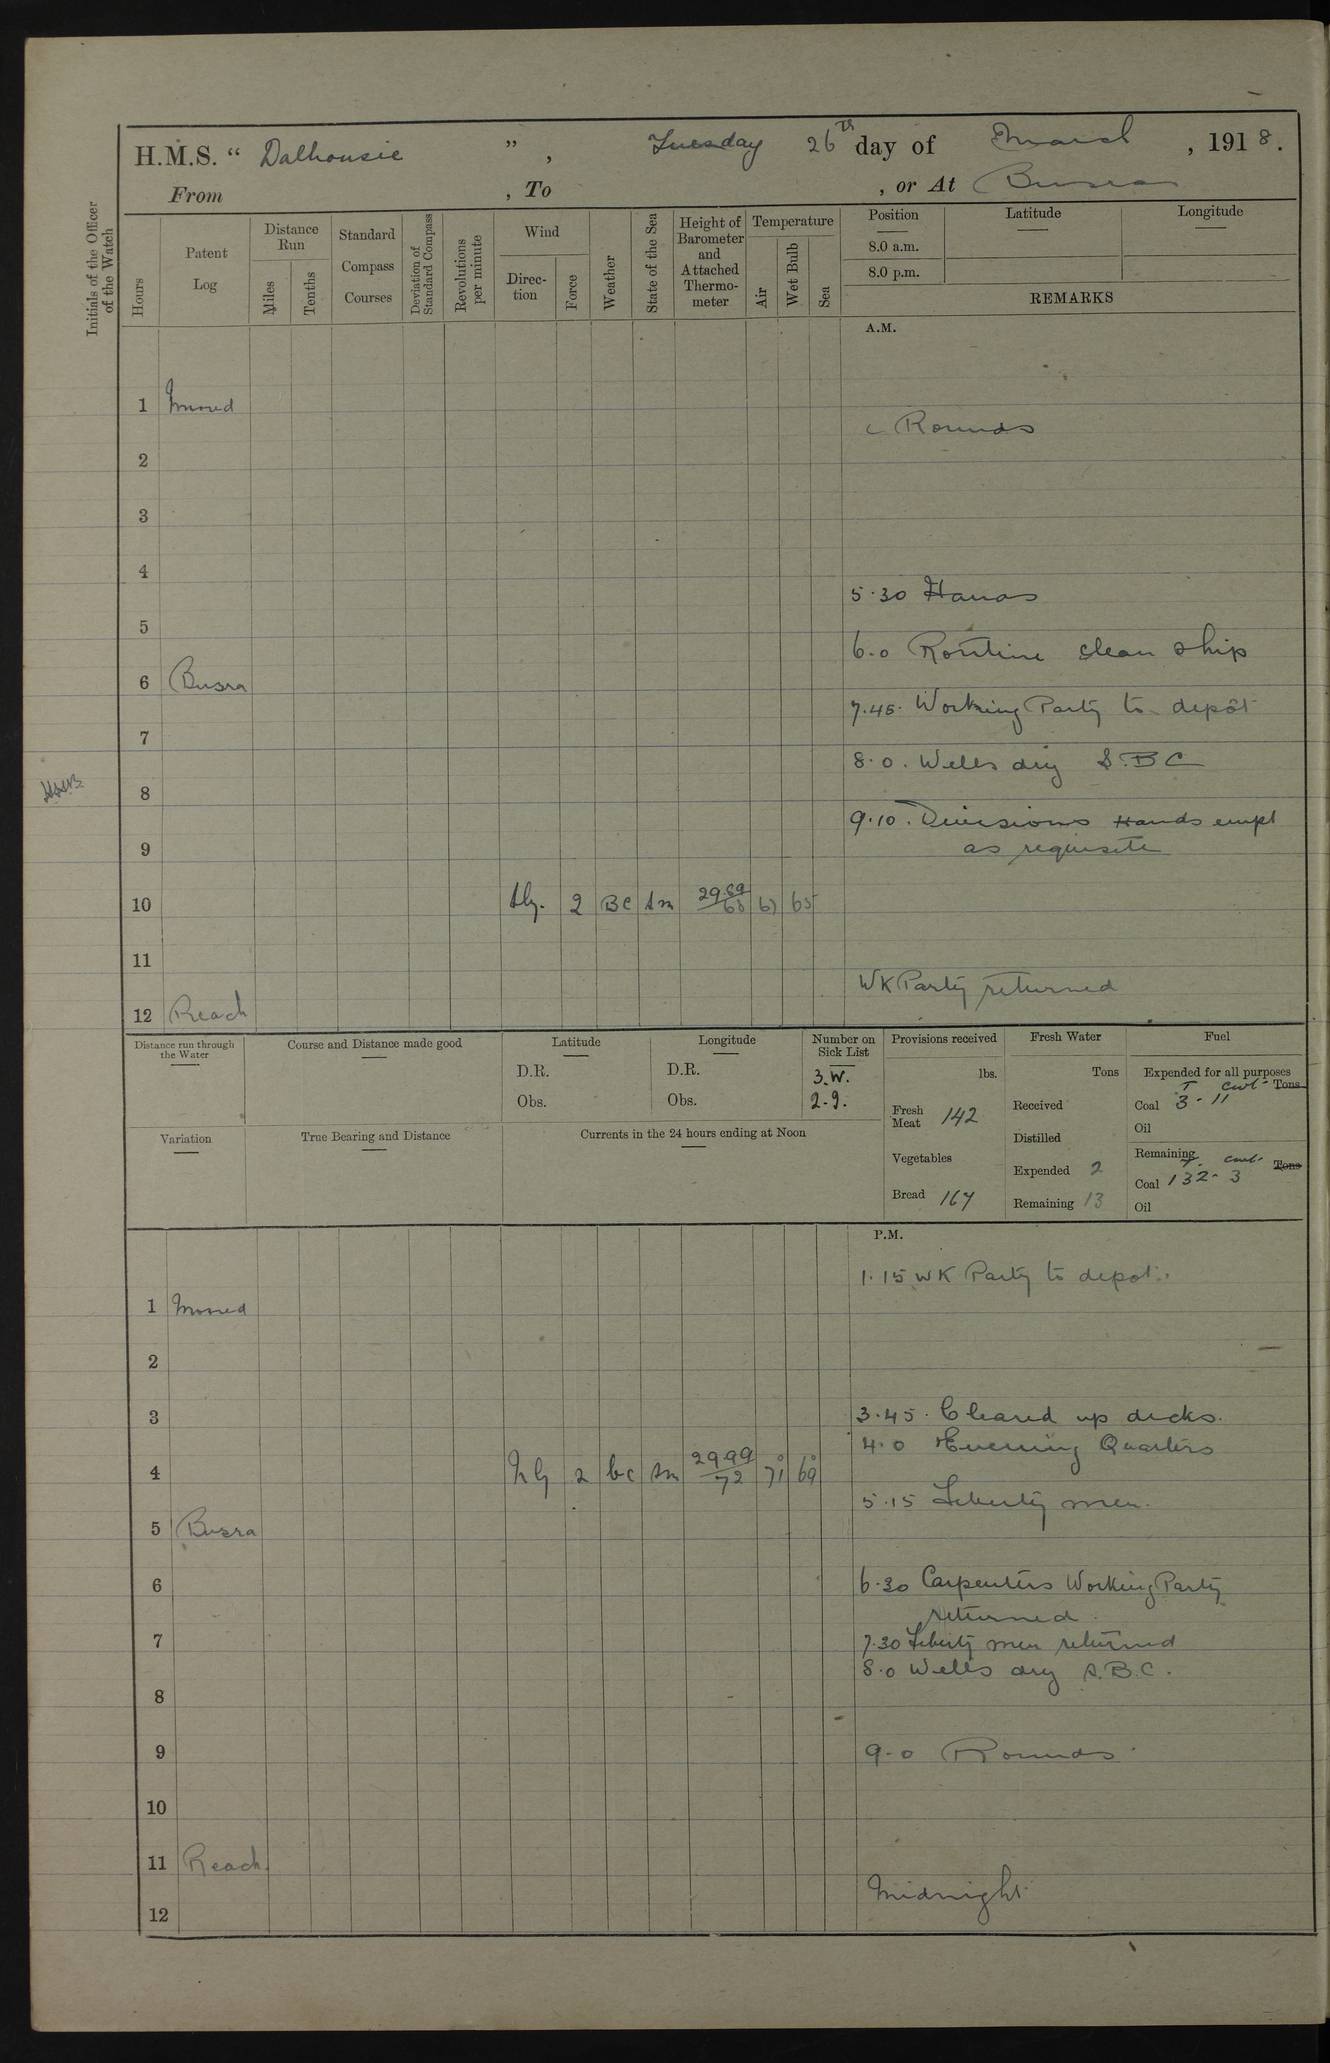 H.M.S. “ Dalhousie ” , Tuesday 26th day of March , 1918.
From , To , or At Busra
Initials of the Officer of the Watch
Hours
Patent Log
Distance Run
Miles
Tenths
Standard Compass Courses
Deviation of Standard Compass
Revolutions per minute
Wind
Direc-tion
Force
Weather
State of the Sea
Height of Barometer and Attached Thermo-meter
Temperature
Air
Wet Bulb
Sea
Position
Latitude
Longitude
8.0 a.m.
8.0 p.m.
REMARKS
A.M.
1 Moored
Rounds
2
3
4
5.30 Hands
5
6.0 Routine clean ship
6 Busra
7.45. Working Party to depôt
7
8.0. Wells dry S.B.C
8
9.10. Divisions Hands empl
9 as requisite
10 2 BC Sm 65
11
WK Party returned
12 Reach
Distance run through the Water
Course and Distance made good
Latitude
D.R.
Obs.
Longitude
D.R.
Obs.
Number on Sick List
3.W.
2.9.
Provisions received
lbs.
Fresh Meat 142
Vegetables
Bread 167
Fresh Water
Tons
Received
Distilled
Expended 2
Remaining 13
Fuel
Expended for all purposes
T cwt Tons
Coal 3 - 11
Oil
Remaining
T. cwt. Tons
Coal 132 - 3
Oil
Variation
True Bearing and Distance
Currents in the 24 hours ending at Noon
P.M.
1.15 WK Party to depot.
1 Moored
2
3 3.45. Cleared up decks.
4.0 Evening Quarters
4 Nly 2 bc sm 29.99 72 71° 69°
5.15 Liberty men.
5 Busra
6 6.30 Carpenters Working Party
returned.
7 7.30 Liberty men returned
8.0 Wells dry S.B.C.
8
9 9.0 Rounds
10
11 Reach
Midnight
12